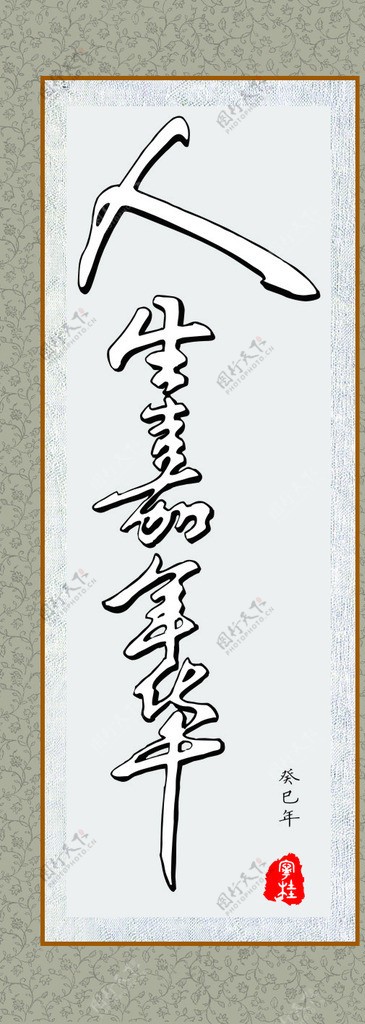 人生嘉年华
癸巳年
图行天下
PHOTOPHOTO.CN